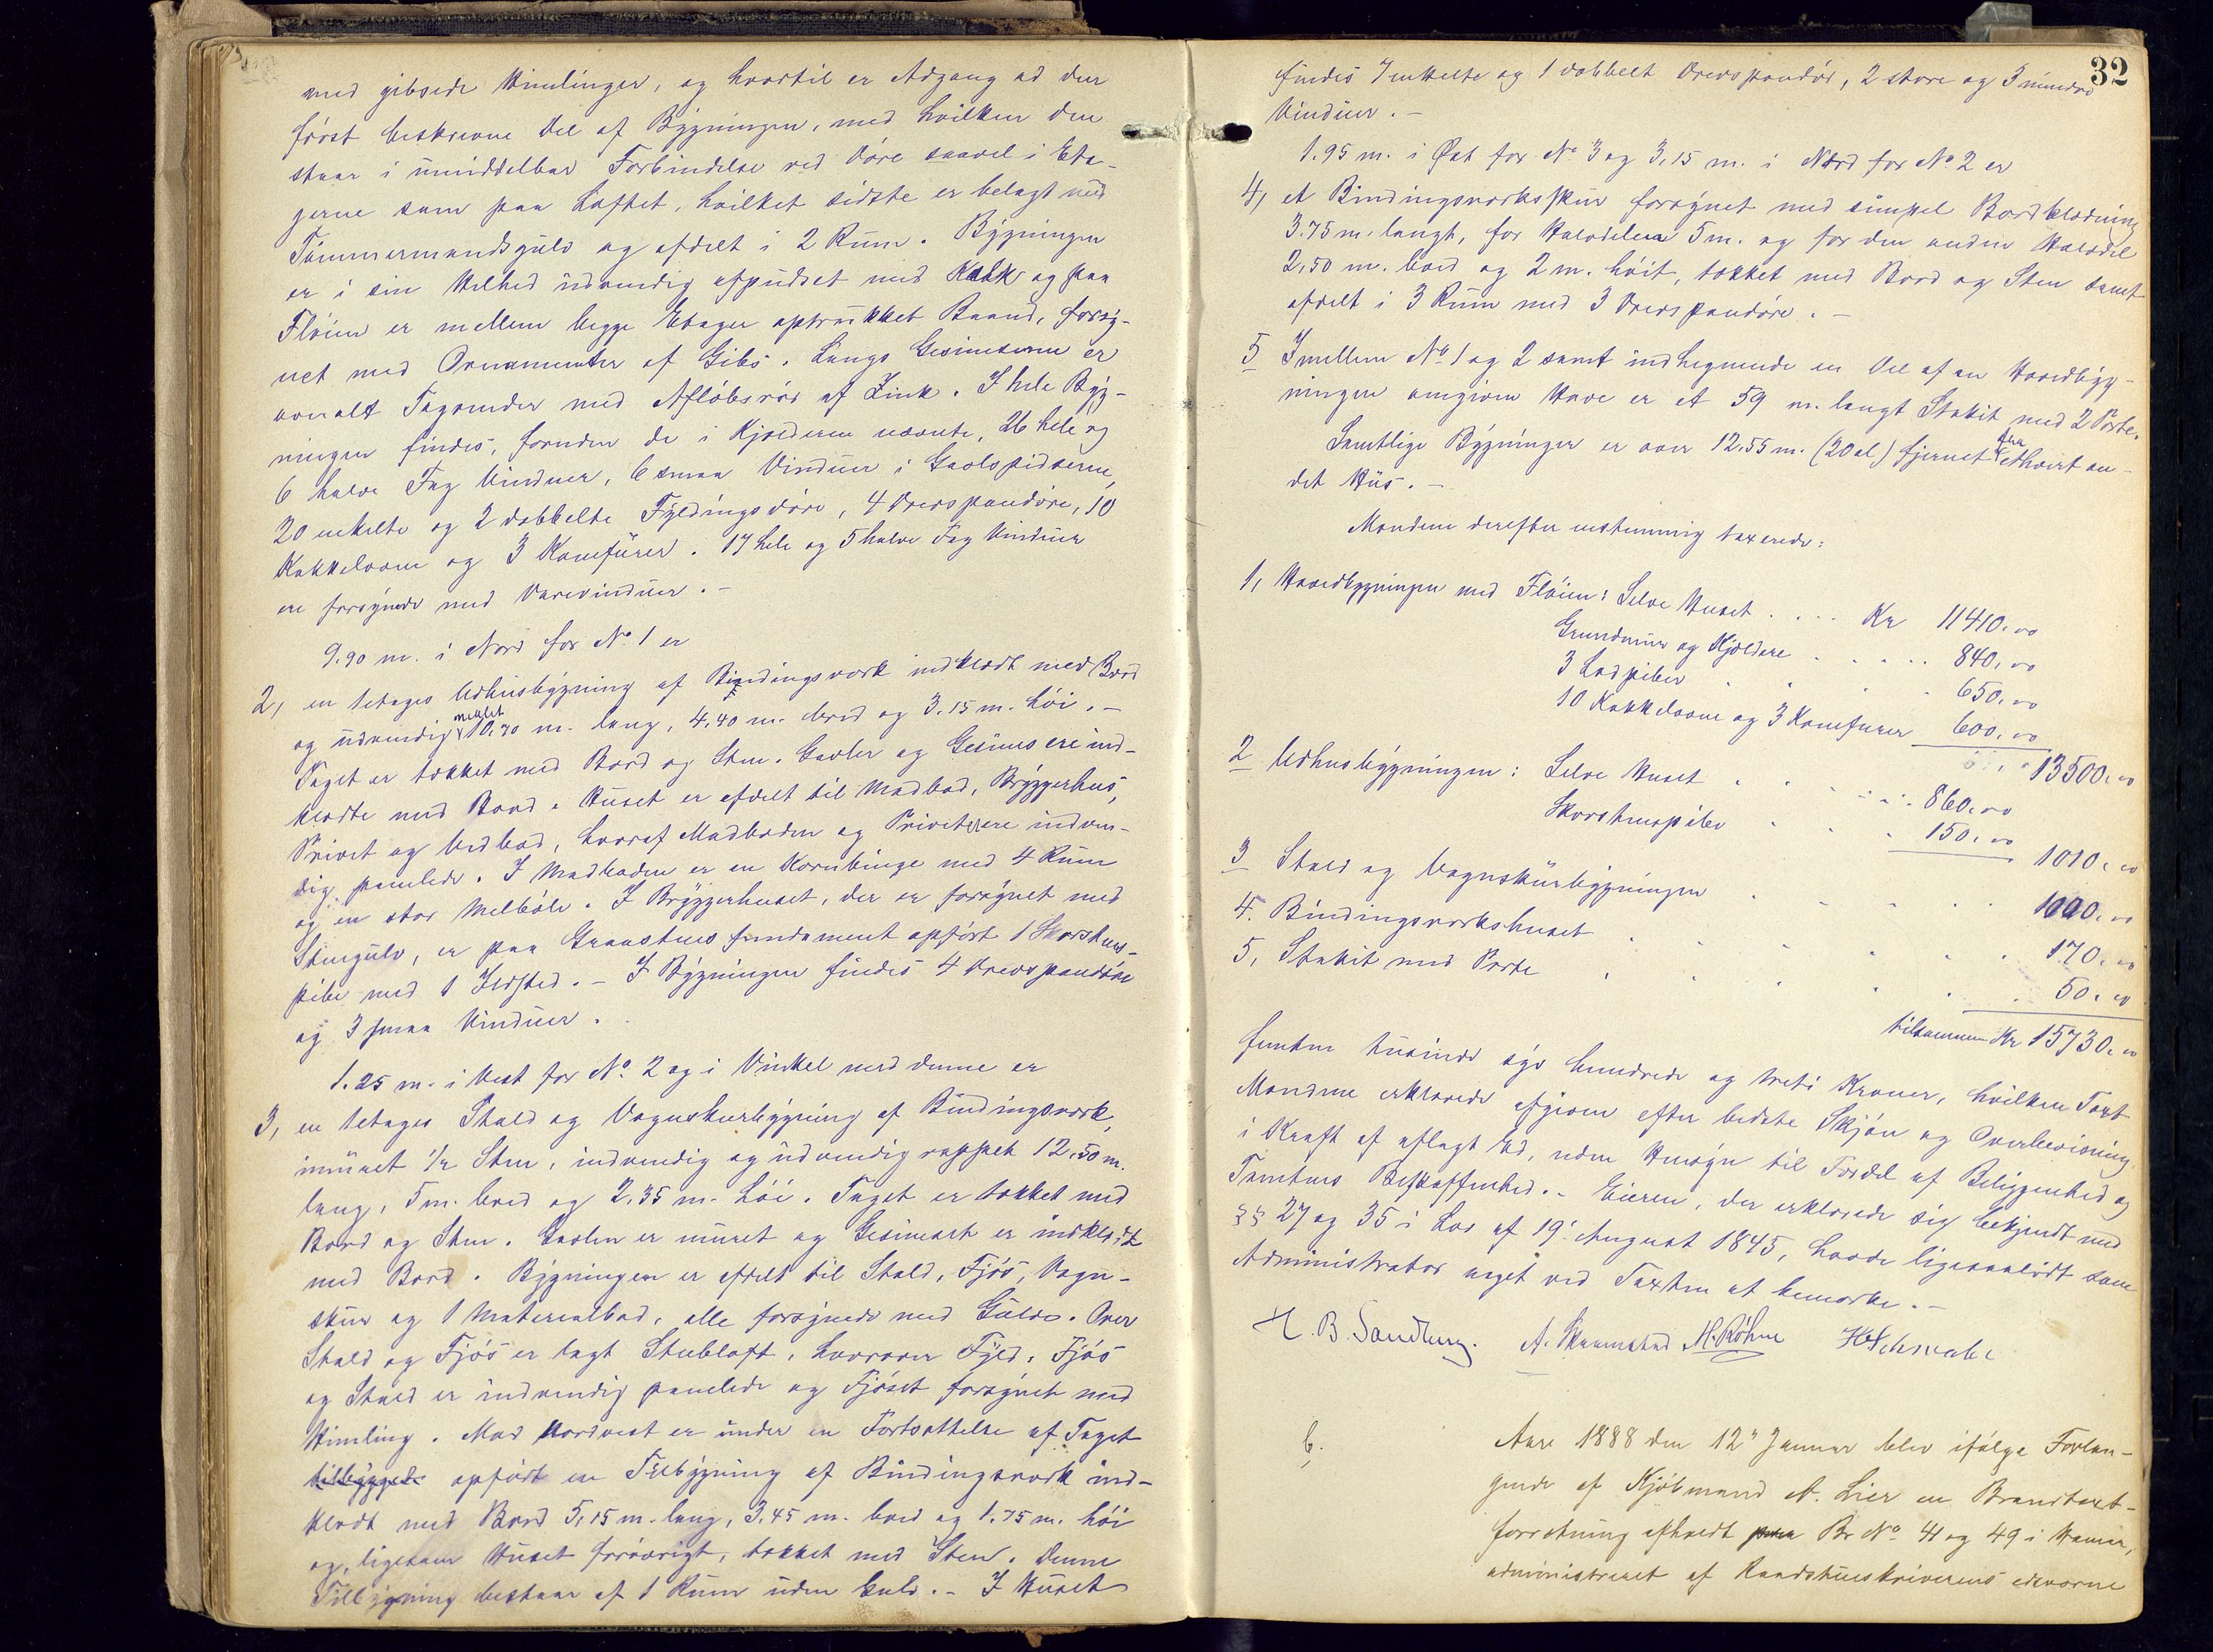 med gibsede Himlinger, og hvortil er Adgang ad den
først beskrevne Del af Bygningen, med hvilken den
staar i umiddelbar Forbindelse ved Døre saavel i Eta-
gerne som paa Loftet, hvilket sidste er belagt med
Tømmermandsgulv og afdelt i 2 Rum. Bygningen
er i sin Helhed udvendig afpudset med Kalk og paa
Fløien er mellem begge Etager optrukket Baand, forsy-
net med Ornamenter af Gibs. Langs Gesimserne er
overalt Tagrender med Afløbsrør af Zink. I hele Byg-
ningen findes, foruden de i Kjælderen nævnte, 26 hele og
6 halve Fag Vinduer, 6 smaa Vinduer i Gavlspidserne,
20 enkelte og 2 dobbelte Fyldingsdøre, 4 Drevspandøre, 10
Kakkelovne og 3 Komfurer. 17 hele og 5 halve Fag Vinduer
ere forsynede med Varevinduer.-
9.90 m. i Nord for No 1 er
2, en 1etages Udhusbygning af Bindingsværk indklædt med Bord
og udvendig malet 10.70 m. lang, 4.40 m. bred og 3.15 m. høi.-
Taget er tækket med Bord og Sten. Gavler og Gesims ere ind-
klædte med Bord. Huset er afdelt til Madbod, Bryggerhus,
Privet og Vedbod, hvoraf Madboden og Privetet ere indven-
dig panelede. I Madboden er en Kornbinge med 4 Rum
og en stor Melbøle. I Bryggerhuset, der er forsynet med
Stengulv, er paa Graastens fundament opført 1 Skorstens-
pibe med 1 Ildsted.- I Bygningen findes 4 Drevspandøre
og 3 smaa Vinduer.
1.25 m. i Vest for No 2 og i Vinkel med denne er
3, en 1etages Stald og Vognskurbygning af Bindingsværk,
imuret 1/2 Sten, indvendig og udvendig rappet 12.50 m.
lang, 5 m. bred og 2.35 m. høi. Taget er tækket med
Bord og Sten. Gavlen er muret og Gesimset er indklædt
med Bord. Bygningen er afdelt til Stald, Fjøs, Vogn-
skur og 1 Materialbod, alle forsynede med Gulve. Over
Stald og Fjøs er lagt Stubloft, hvorover Fyld. Fjøs
og Stald er indvendig panelede og Fjøset forsynet med
Himling. Mod Nordvest er under en Fortsættelse af Taget
tilbygget opført en Tilbygning af Bindingsværk ind-
klædt med Bord 5.15 m. lang, 3.45 m. bred og 1.75 m. høi
og, ligesom Huset forøvrigt, tækket med Sten. Denne
Tilbygning bestaar af 1 Rum uden Gulv.- I Huset
32
findes 7 enkelte og 1 dobbelt Drevspandør, 2 store og 3 mindre
Vinduer.-
1.95 m. i Øst for No 3 og 3.15 m. i Nord for No 2 er
4, et Bindingsværksskur forsynet med simpel Bordklædning
3.75 m. langt, for Halvdelen 5 m. og for den anden Halvdel
2.50 m. bred og 2 m. høit, tækket med Bord og Sten samt
afdelt i 3 Rum med 3 Drevspandøre.-
5 Imellem No 1 og 2 samt indhegnende en Del af en Hovedbyg-
ningen omgiven Have er et 59 m. langt Stakit med 2 Porte.
Samtlige Bygninger er over 12.55 m. (20 al) fjernet fra ethvert an-
det Hus.-
Mændene derefter enstemmig taxerede:
1, Hovedbygningen med Fløien: Selve Huset .... Kr 11410.00
Grundmur og Kjældere ..... 840.00
3 Lodpiber . . . . 650.00
10 Kakkelovne og 3 Komfurer 600.00
13500.00
2 Udhusbygningen: Selve Huset . . . . . 860.00
Skorstenspibe . . . 150.00
1010.00
3 Stald og Vognskurbygningen . . . . 1000.00
4. Bindingsværkshuset . . . . . . 170.00
5, Stakit med Porte . . . . . . 50.00
tilsammen Kr 15730.00
femten tusinde syv hundrede og treti Kroner, hvilken Taxt
Mændene erklærede afgiven efter bedste Skjøn og Overbevisning
i Kraft af aflagt Ed, uden Hensyn til Fordel af Beliggenhed og
Tomtens Beskaffenhed.- Eieren, der erklærede sig bekjendt med
§§ 27 og 35 i Lov af 19. August 1845, havde ligesaalidt som
Administrator noget ved Taxten at bemærke.-
H. B. Sandberg. A. H. Røhne H Schwabe
6.
Aar 1888 den 12" Januar blev ifølge Forlan-
gende af Kjøbmand A. Lier en Brandtaxt-
forretning afholdt paa Br No 41 og 49 i Hamar,
administreret af Raadstueskriverens edsvorne